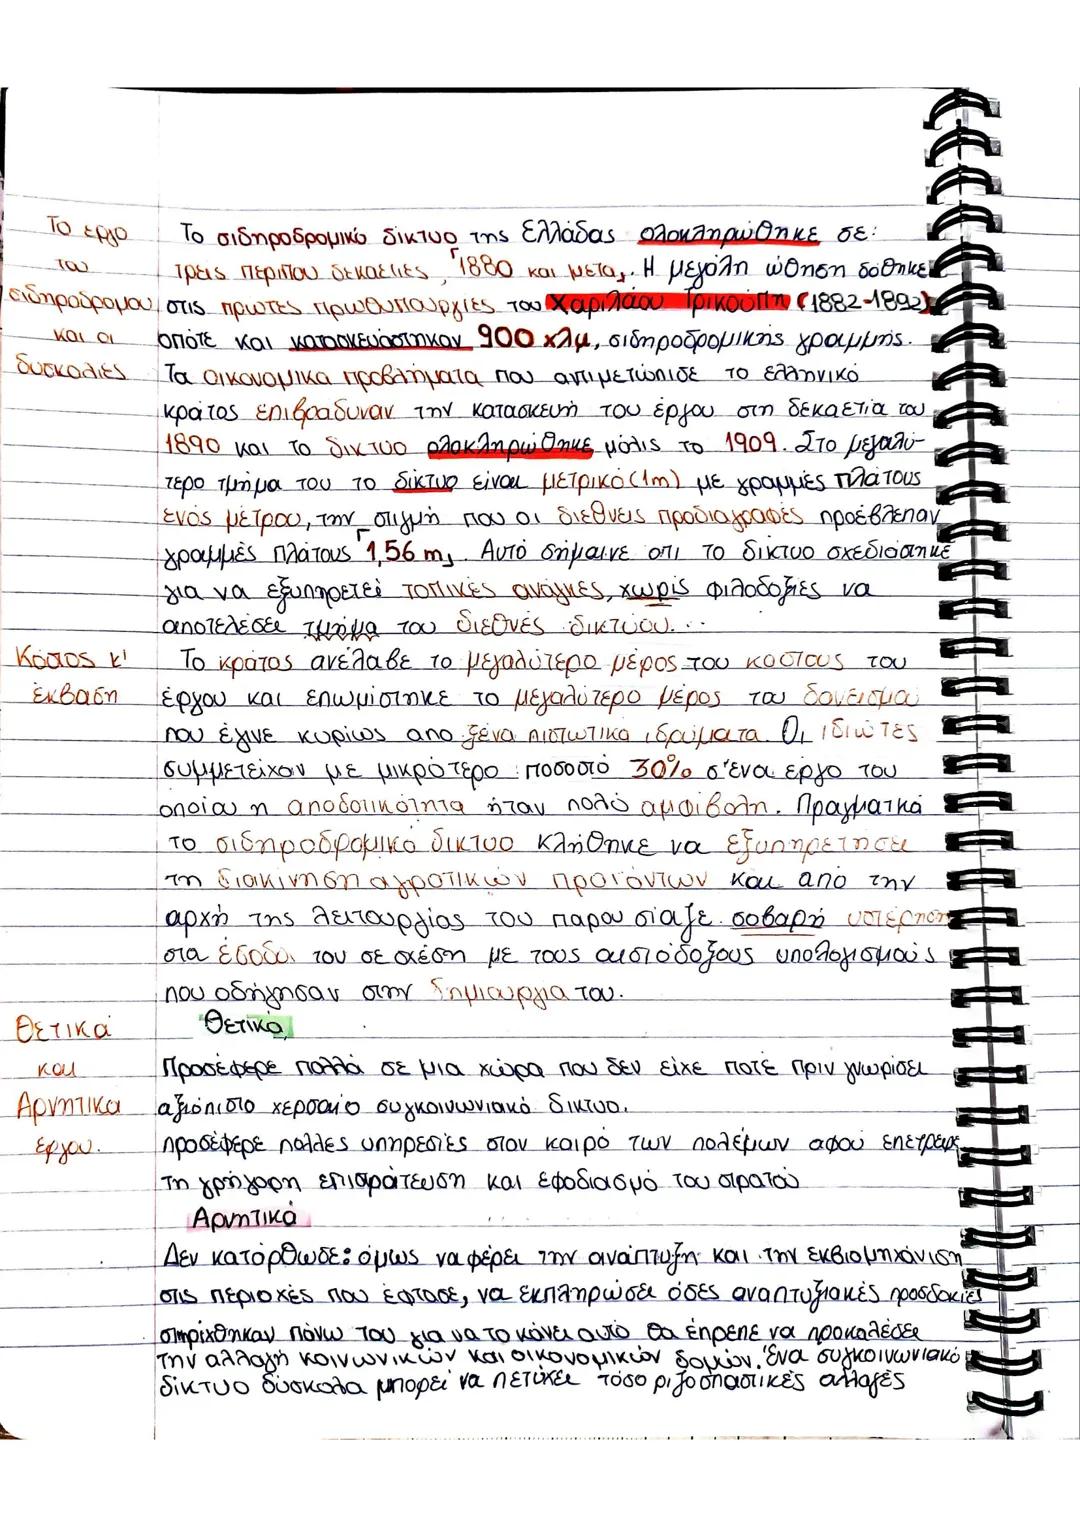 Το έργο
του
σιδηροδρομου
και οι
δυσκολιες
Το σιδηροδρομικό δίκτυο της Ελλάδας ολοκληρώθηκε σε:
τρεις περίπου δεκαετίες, 1880 και μετα,. Η μεγάλη ώθηση δόθηκε
στις πρώτες πρωθυπουργίες του Χαριλάου Τρικούπη (1882-1892)
οπότε και κατασκευάστηκαν 900 χλμ, σιδηροδρομικής γραμμής.
Τα οικονομικα προβλήματα που αντιμετώπισε το ελληνικό
κράτος επιβράδυναν την κατασκευή του έργου στη δεκαετία του
1890 και το δίκτυο ολοκληρώθηκε μόλις το 1909. Στο μεγαλύ-
τερο τμήμα του το δίκτυο είναι μετρικό (1m) με γραμμές πλάτους
ενός μέτρου, την στιγμή που οι διεθνείς προδιαγραφές προέβλεπαν
γραμμές πλάτους 1,56 m,. Αυτό σήμαινε οτι το δίκτυο σχεδιάστηκε
για να εξυπηρετεί τοπικές ανάγκες, χωρίς φιλοδοξίες να
αποτελέσει τμήμα του διεθνές δικτύου...
Κόστος κ'
έκβαση
Το κράτος ανέλαβε το μεγαλύτερο μέρος του κόστους του
έργου και επωμίστηκε το μεγαλύτερο μέρος του δανεισμού
που έγινε κυρίως απο ξένα πιστωτικά ιδρύματα. Οι ιδιώτες
συμμετείχαν με μικρότερο ποσοστό 30% σ'ένα έργο του
οποίου η αποδοτικότητα ήταν πολύ αμφίβολη. Πραγματικά
το σιδηροδρομικό δίκτυο κλήθηκε να εξυπηρετήσει
τη διακίνηση αγροτικών προϊόντων και από την
αρχή της λειτουργίας του παρουσίαζε σοβαρή υστέρηση
στα έσοδα του σε σχέση με τους αισιόδοξους υπολογισμούς
που οδήγησαν στην δημιουργία του.
Θετικά
και
Αρνητικα
έργου.
Θετικά
Προσέφερε πολλά σε μια χώρα που δεν είχε ποτέ πριν γνωρίσει
αξιόπιστο χερσαίο συγκοινωνιακό δίκτυο.
προσέφερε πολλές υπηρεσίες στον καιρό των πολέμων αφού επέτρεψε
τη γρήγορη επιστράτευση και εφοδιασμό του στρατού
Αρνητικά
Δεν κατόρθωσε: όμως να φέρει την ανάπτυξη και την εκβιομηχάνιση
στις περιοχές που έφτασε, να εκπληρώσει όσες αναπτυξιακές προσδοκίες
στηρίχθηκαν πάνω του για να το κάνει αυτό θα έπρεπε να προκαλέσει
την αλλαγή κοινωνικών και οικονομικών δομών. Ένα συγκοινωνιακό
δίκτυο δύσκολα μπορεί να πετύχει τόσο ριζοσπαστικές αλλαγές